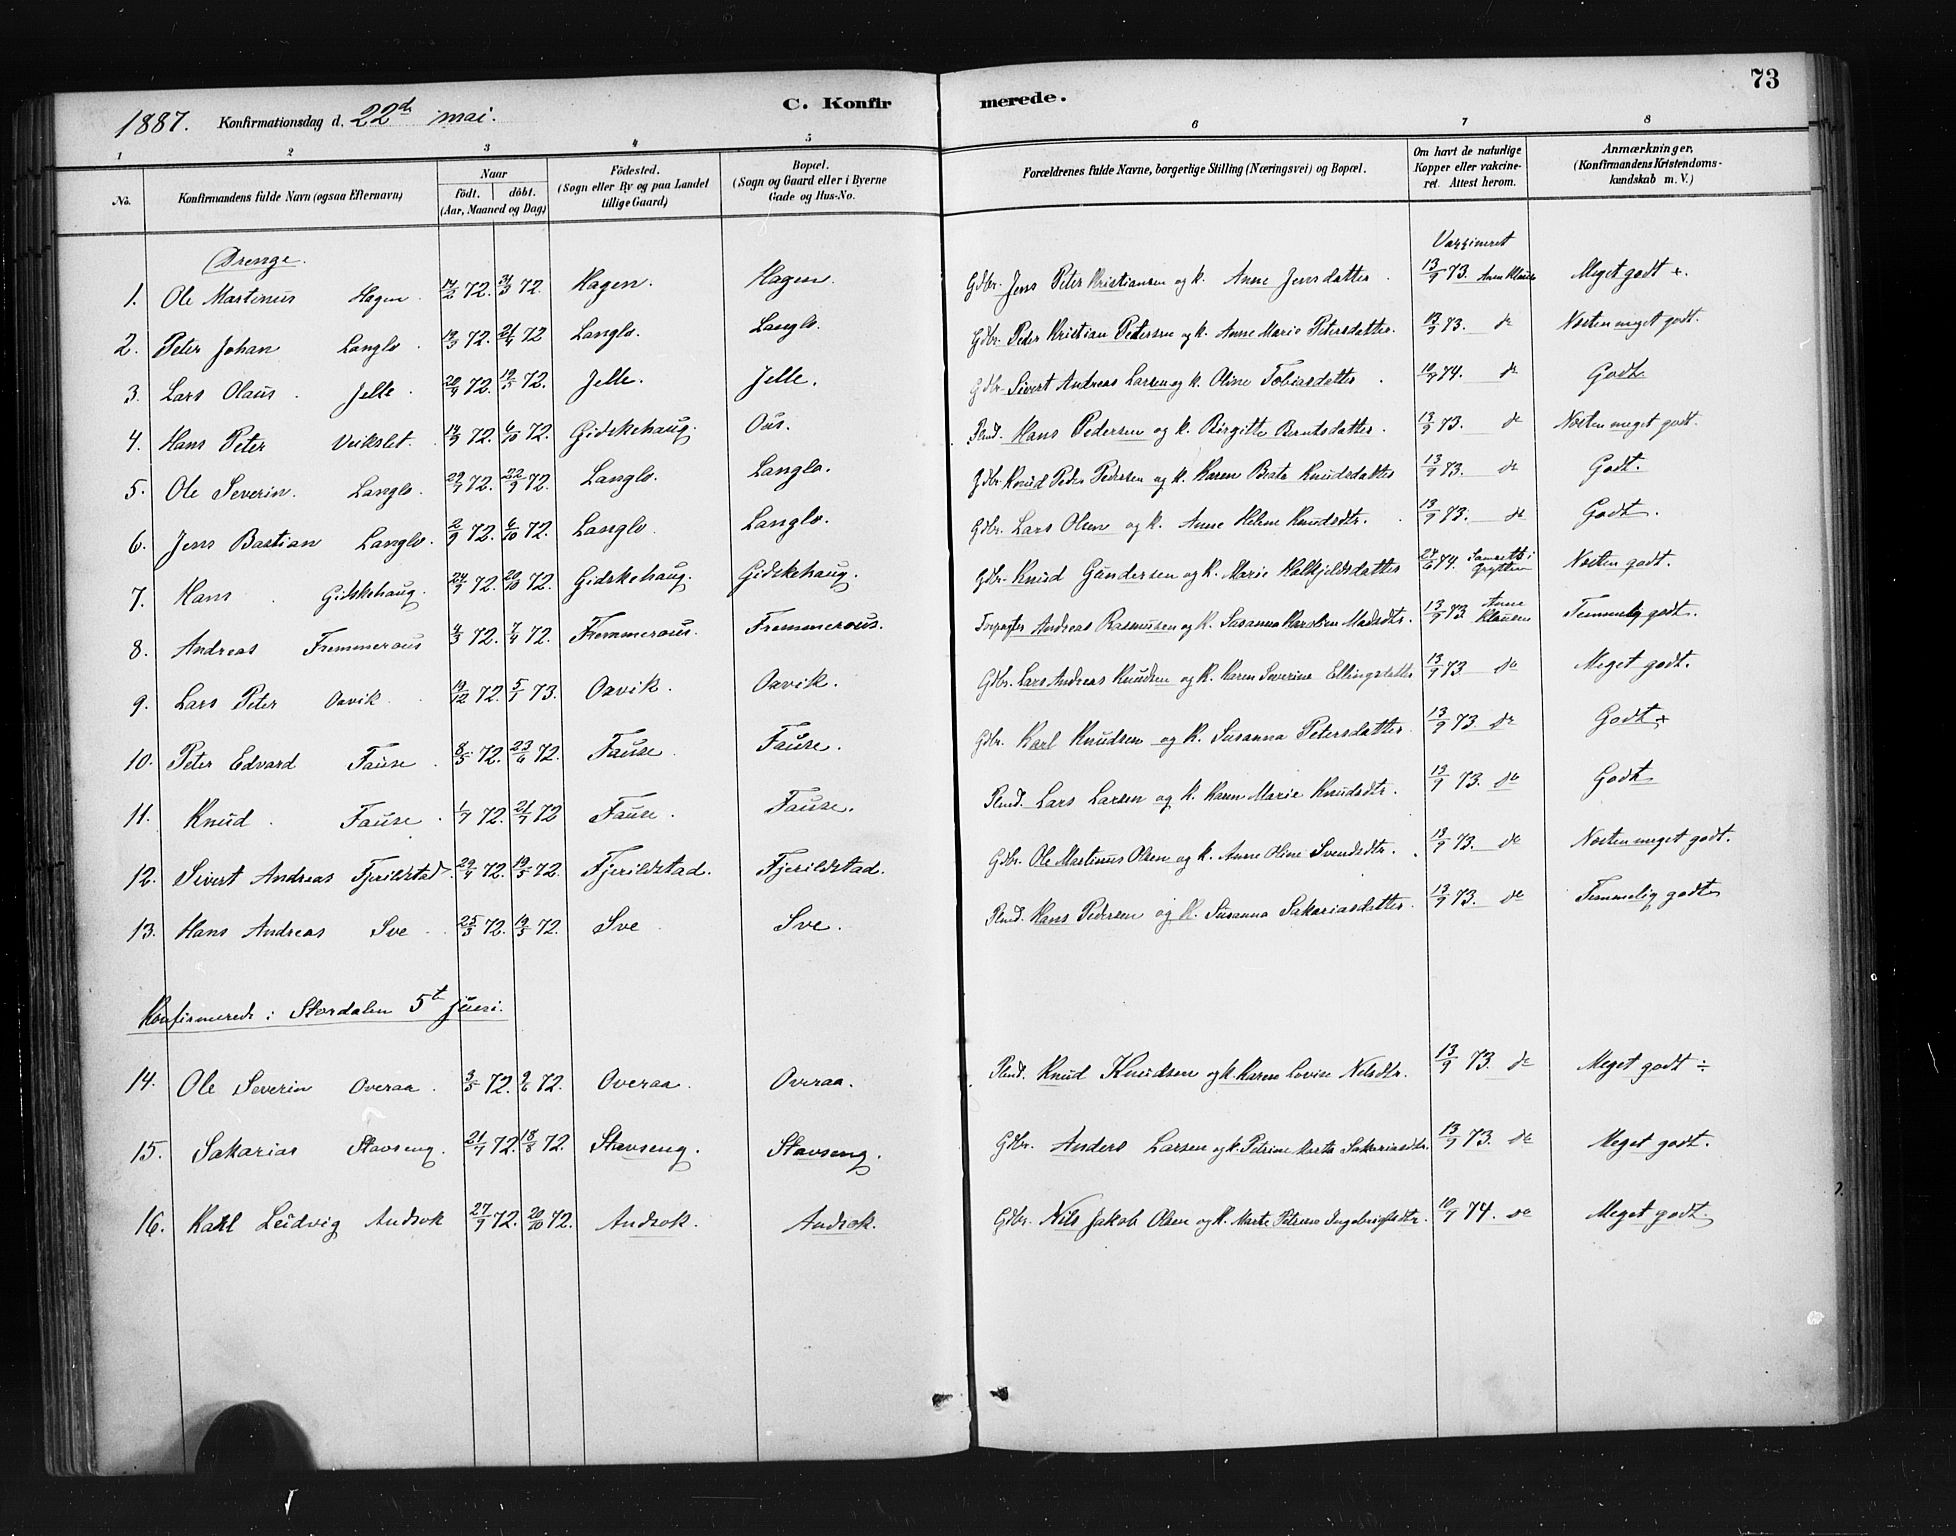 73
C. Konfirmerede.
1887. Konfirmationsdag d. 22d mai.
1 2 3 4 5 6 7 8
No. Konfirmandens fulde Navn (ogsaa Efternavn) Naar født. døbt. (Aar, Maaned og Dag) Fødested. (Sogn eller By og paa Landet tillige Gaard) Bopæl. (Sogn og Gaard eller i Byerne Gade og Hus-No. Forældrenes fulde Navne, borgerlige Stilling (Næringsvei) og Bopæl. Om havt de naturlige Kopper eller vakcineret. Attest herom. Anmærkninger, (Konfirmandens Kristendomskundskab m. V.)
Drenge. Vaxineret
1. Ole Martinus Hagen 72. 72. Hagen. Hagen. Gdbr. Jens Peter Kristiansen og k. Anne Jensdatter 13/9 73. Ane Klausen Meget godt +.
2. Peter Johan Langlo 19/3 72. 21/4 72 Langlo. Langlo. Gdbr. Peder Kristian Pedersen og k. Anne Marie Petersdatter 13/9 73. do Næsten meget godt.
3. Lars Olaus Jelle 20/4 72. 19/5 72. Jelle. Jelle. Gdbr. Sivert Andreas Larsen og k. Oline Tobiasdatter 74. do Godt
4. Hans Peter Veikslet 14/9 72. 6/10 72. Gidskehaug. Ous. Plmd. Hans Pedersen og k. Birgitte Berntsdatter. 13/9 73. do Næsten meget godt.
5. Ole Severin. Langlo. 72. 22/9 72. Langlo. Langlo. Gdbr. Knud Peder Pedersen og k. Karen Beate Knudsdatter 13/9 73. do Godt.
6. Jens Bastian Langlo. 2/9 72. 6/10 72. Langlo. Langlo. Gdbr. Lars Olsen og k. Anne Helene Knudsdtr. 13/9 73. do Godt.
7. Hans Gidskehaug. 24/9 72. 20/10 72. Gidskehaug. Gidskehaug. Gdbr. Knud Gundersen og k. Marie Halkjeldsdatter 24/6 74. i Grytten Næsten godt.
8. Andreas Fremmerous 4/3 72. 7/4 72. Fremmerous. Fremmerous. Forpagter Andreas Rasmussen og k. Susanna Karoline Madsdtr. 13/9 73 Anne Klausen Temmelig godt.
9. Lars Peter Oavik 19/12 72. 5/1 73. Oavik. Oavik. Gdbr. Lars Andreas Knudsen og k. Karen Severine Ellingsdatter 13/9 73 do Meget godt.
10. Peter Edvard Fause 8/5 72. 23/6 72. Fause. Fause. Gdbr. Karl Knudsen og k. Susanna Petersdatter 13/9 73 do Godt +
11. Knud Fause 1/7 72. 21/7 72 Fause. Fause. Plmd. Lars Larsen og k. Karen Marie Knudsdtr. 13/9 73. do Godt
12. Sivert Andreas Fjørildstad. 29/4 72. 19/5 72. Fjørildstad. Fjørildstad. Gdbr. Ole Martinus Olsen og k. Anne Oline Svendsdtr. 13/9 73. do Næsten meget godt.
13. Hans Andreas Sve 25/3 72. 19/5 72. Sve Sve. Plmd. Hans Pedersen og k. Susanna Sakariasdatter. 13/9 73. do Temmelig godt
Konfirmerede i Stordalen 5te juni.
14. Ole Severin Overaa. 3/5 72. 9/6 72. Overaa. Overaa. Plmd. Knud Knudsen og k. Karen Lovise Nilsdtr. 13/9 73. do Meget godt ÷
15. Sakarias Stavseng. 21/7 72. 18/8 72. Stavseng. Stavseng. Gdbr. Anders Larsen og k. Petrine Marta Sakariasdtr. 13/9 73. do Meget godt.
16. Karl Ludvig Andsok 27/9 72. 20/10 72. Andsok. Andsok. Gdbr. Nils Jakob Olsen og k. Marte Petrine Ingebrigtsdtr. 74. do Meget godt.